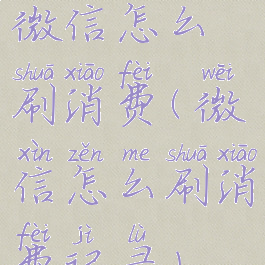 微信怎么
shuā xiāo fèi wēi
刷消费(微
xìn zěn me shuā xiāo
信怎么刷消
fèi jì lù
费记录)